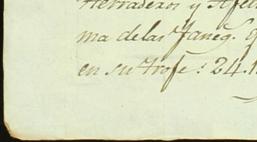 Herraderos y A
ma de las faneg.
en su trofe: 24.1